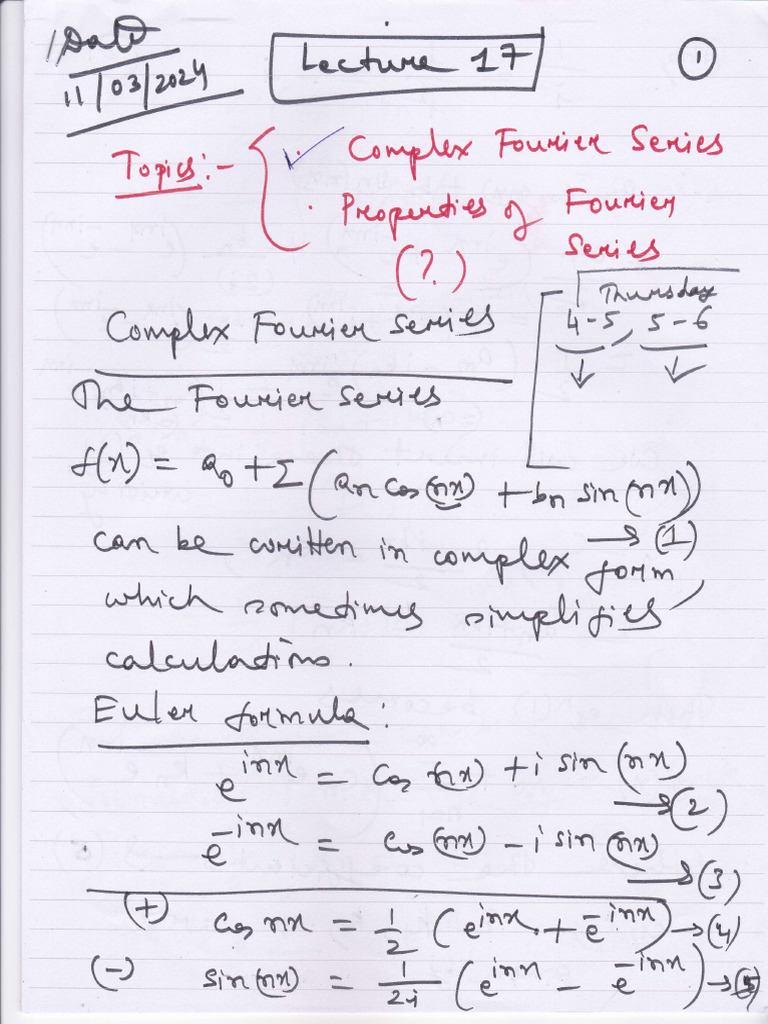 Date
11/03/2024
Lecture 17
1
Topics:-
✓ Complex Fourier Series
. Properties of Fourier
Series
(?)
Thursday
4-5, 5-6
Complex Fourier Series
The Fourier Series
f(x) = a₀ + Σ (aₙ cos(nx) + bₙ sin(nx))
→ (1)
can be written in complex form,
which sometimes simplifies
calculations.
Euler formula:
e^{inx} = cos(nx) + i sin(nx)
→ (2)
e^{-inx} = cos(nx) - i sin(nx)
→ (3)
(+) cos nx = 1/2 (e^{inx} + e^{-inx}) → (4)
(-) sin(nx) = 1/2i (e^{inx} - e^{-inx}) → (5)